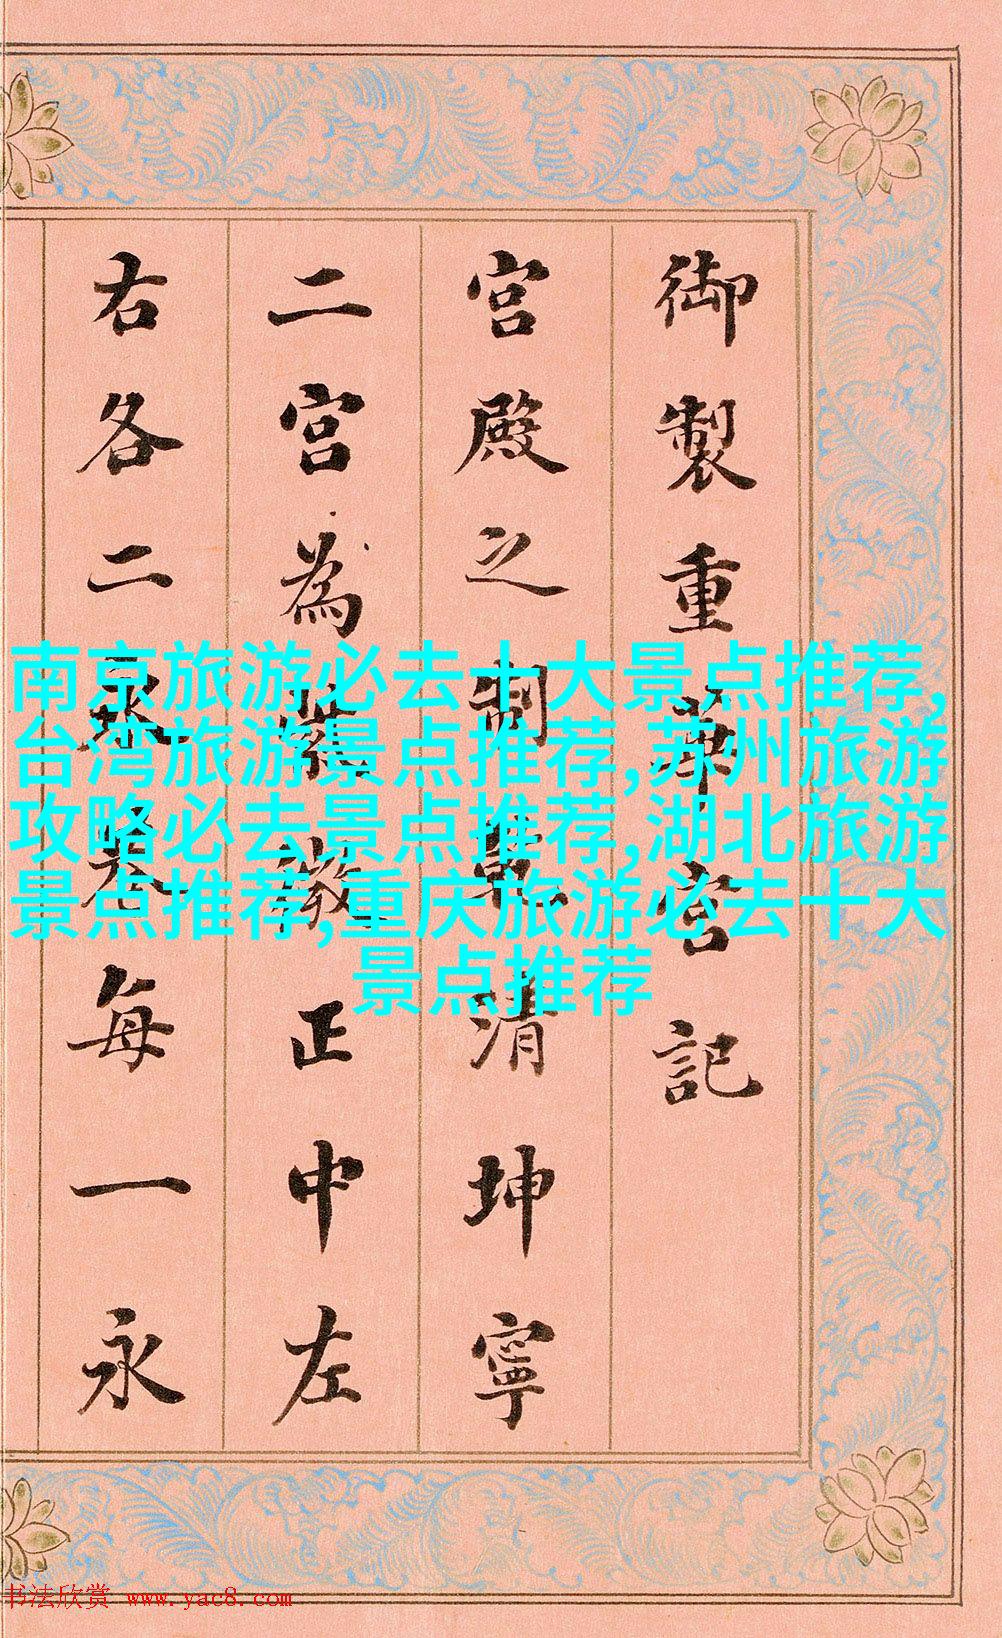 御製重華宮記
宮殿之制乾清坤寧
二宮為紫微正中左
右各二永巷每一永
南京旅游必去十大景点推荐,
台湾旅游景点推荐,苏州旅游
攻略必去景点推荐,湖北旅游
景点推荐,重庆旅游必去十大
景点推荐
书法欣赏 www.yac8.com